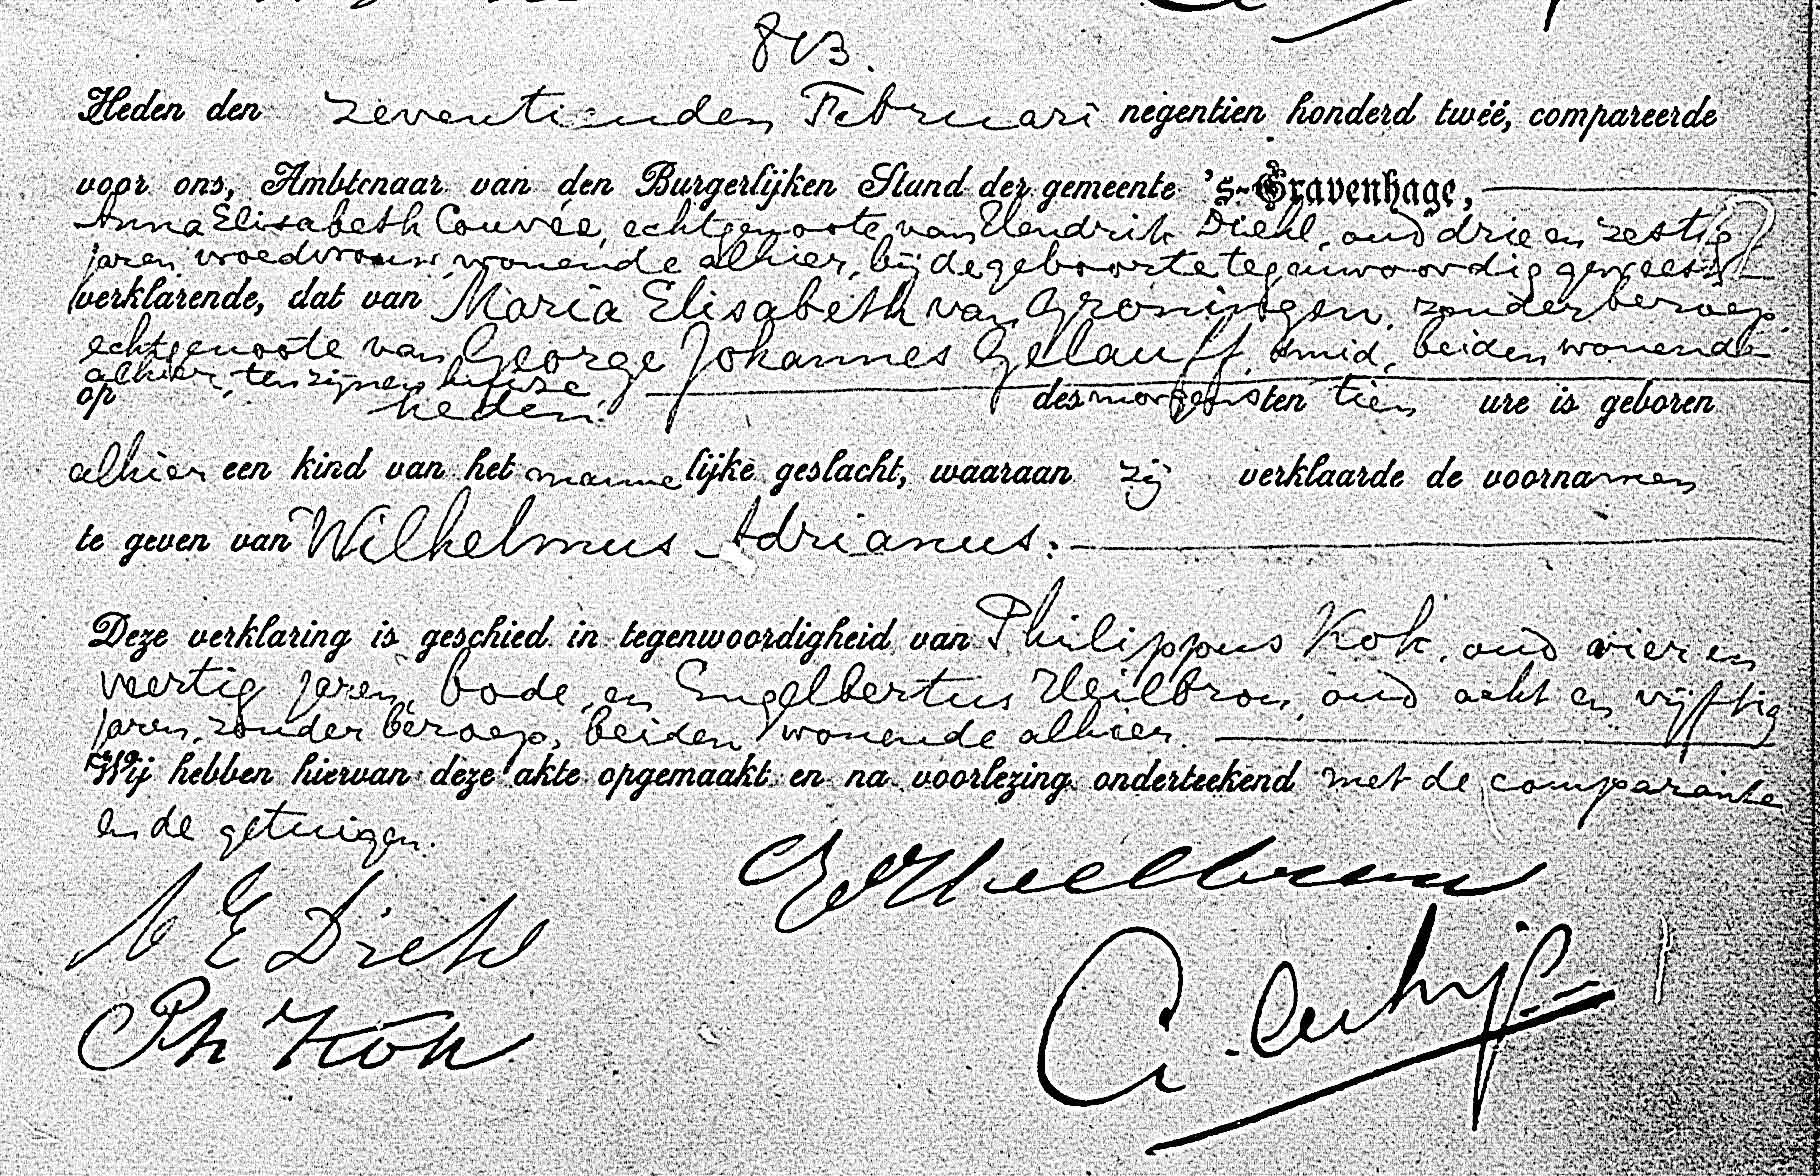 813.
Heden den zeventienden Februari negentien honderd twee, compareerde
voor ons, Ambtenaar van den Burgerlijken Stand der gemeente 's-Gravenhage,
Anna Elisabeth Couvée, echtgenoote van Hendrik Diehl, oud drie en zestig
jaren, vroedvrouw, wonende alhier, bij de geboorte tegenwoordig geweest
verklarende, dat van Maria Elisabeth van Groningen, zonder beroep,
echtgenoote van George Johannes Gelauff, smid, beiden wonende
alhier, ten zijnen huize
op heden des morgens ten tien ure is geboren
alhier een kind van het mannelijke geslacht, waaraan zij verklaarde de voornamen
te geven van Wilhelmus Adrianus.
Deze verklaring is geschied in tegenwoordigheid van Philippus Kok, oud vier en
veertig jaren, bode, en Engelbertus Heilbron, oud acht en vijftig
jaren, zonder beroep, beiden wonende alhier.
Wij hebben hiervan deze akte opgemaakt en na voorlezing onderteekend met de comparante
en de getuigen.
A E Diehl
Ph Kok